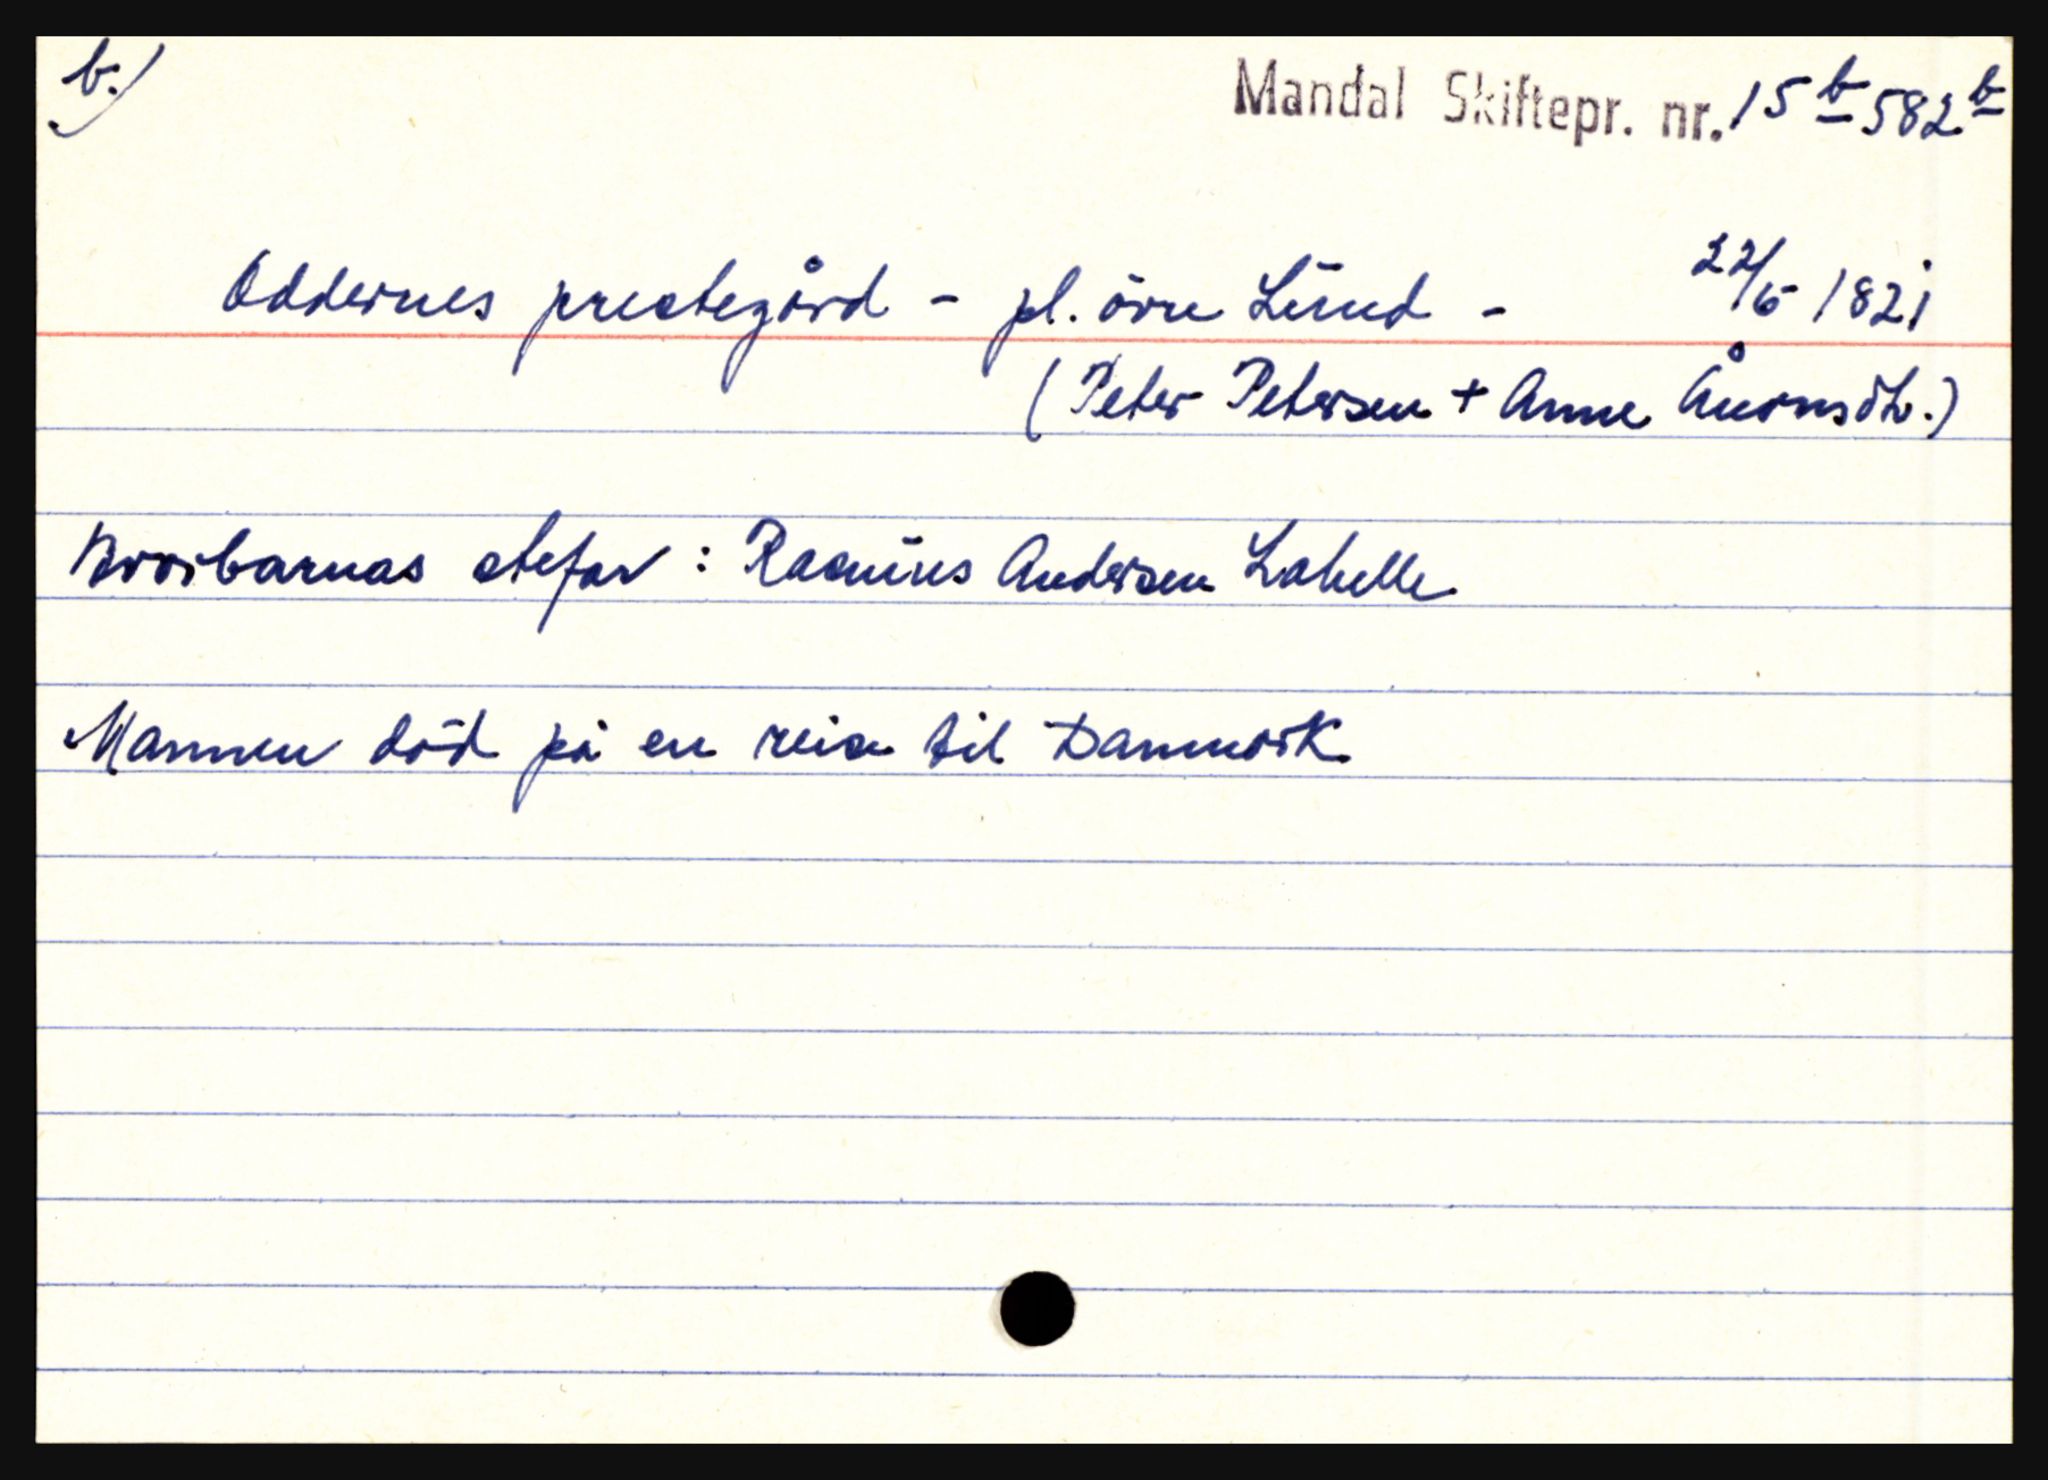 b.)
Mandal Skiftepr. nr. 15b 582b
Oddernes prestegård - pl. övre Lund - 22/5 1821
(Peter Petersen + Anne Åvonsdtr.)
Brorbarnas stefar : Rasmus Andersen Lahelle
Mannen död på en reise til Danmark